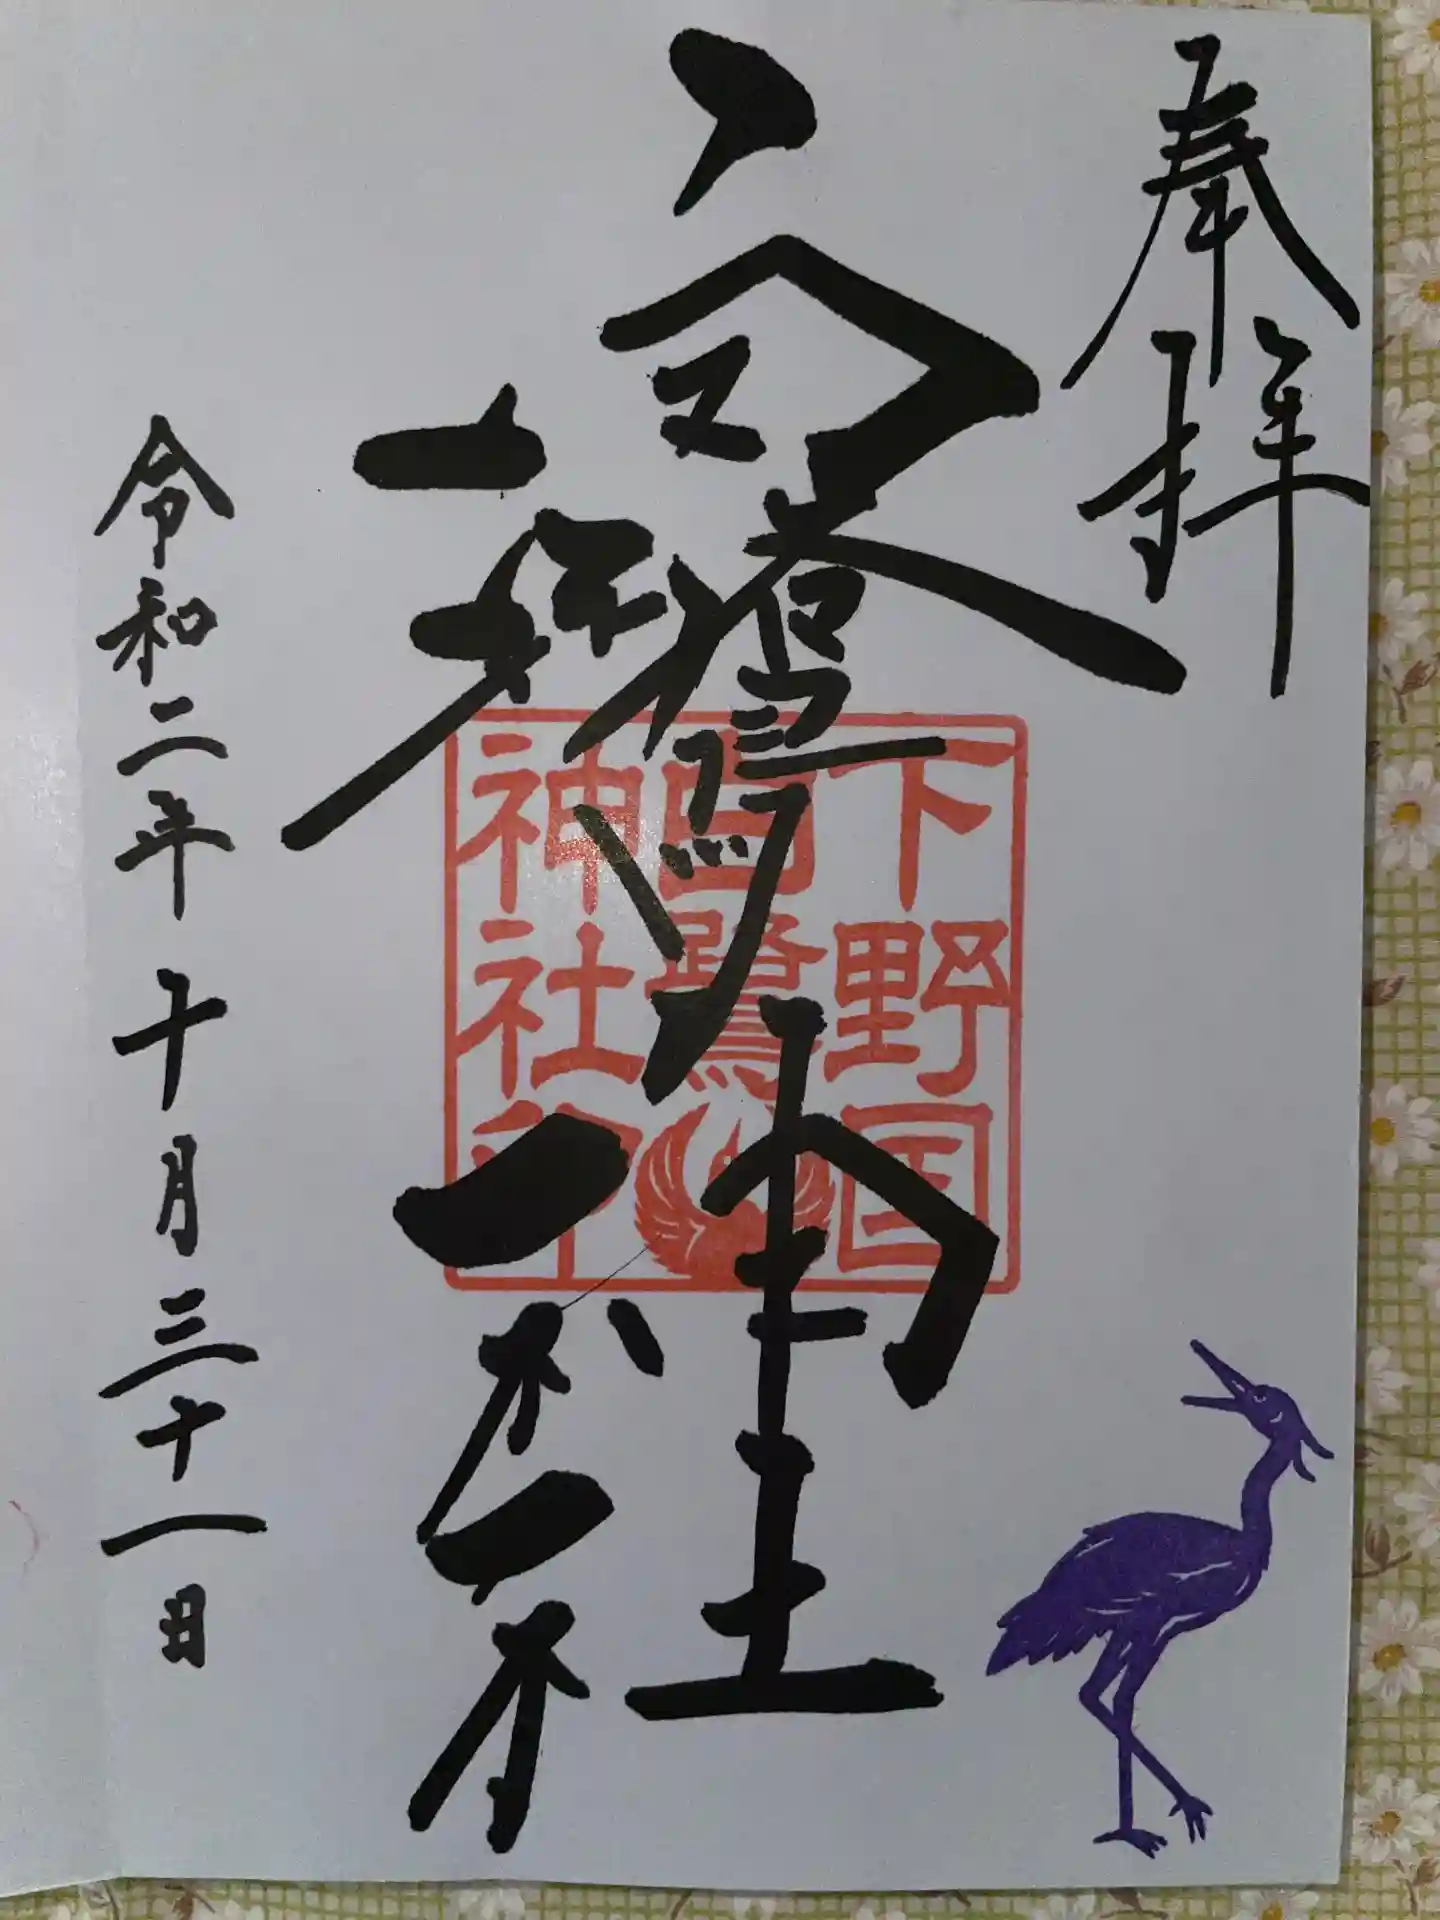 奉拝
白鷺神社
下野国
白鷺
神社印
令和二年十月三十一日